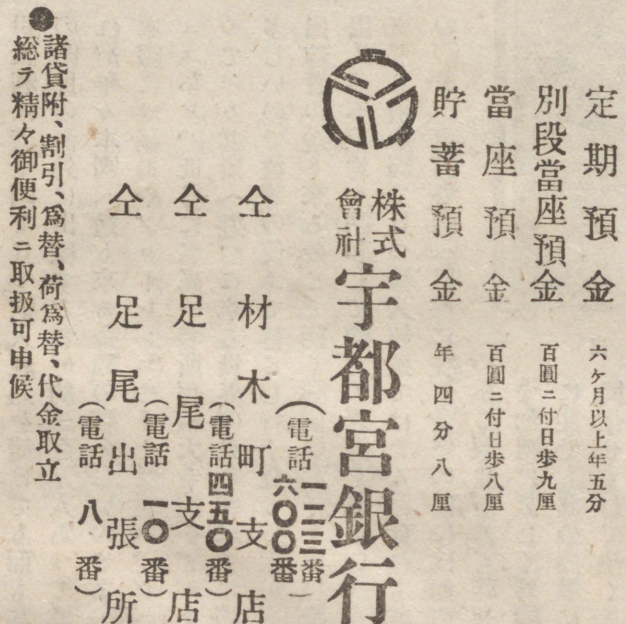 定期預金 六ケ月以上年五分
別段當座預金 百圓ニ付日歩九厘
當座預金 百圓ニ付日歩八厘
貯蓄預金 年四分八厘
株式會社宇都宮銀行
(電話一二三番
六〇〇番)
仝材木町支店
(電話四五〇番)
仝足尾支店
(電話一〇番)
仝足尾出張所
(電話八番)
●諸貸附、割引、爲替、荷爲替、代金取立
総テ精々御便利ニ取扱可申候